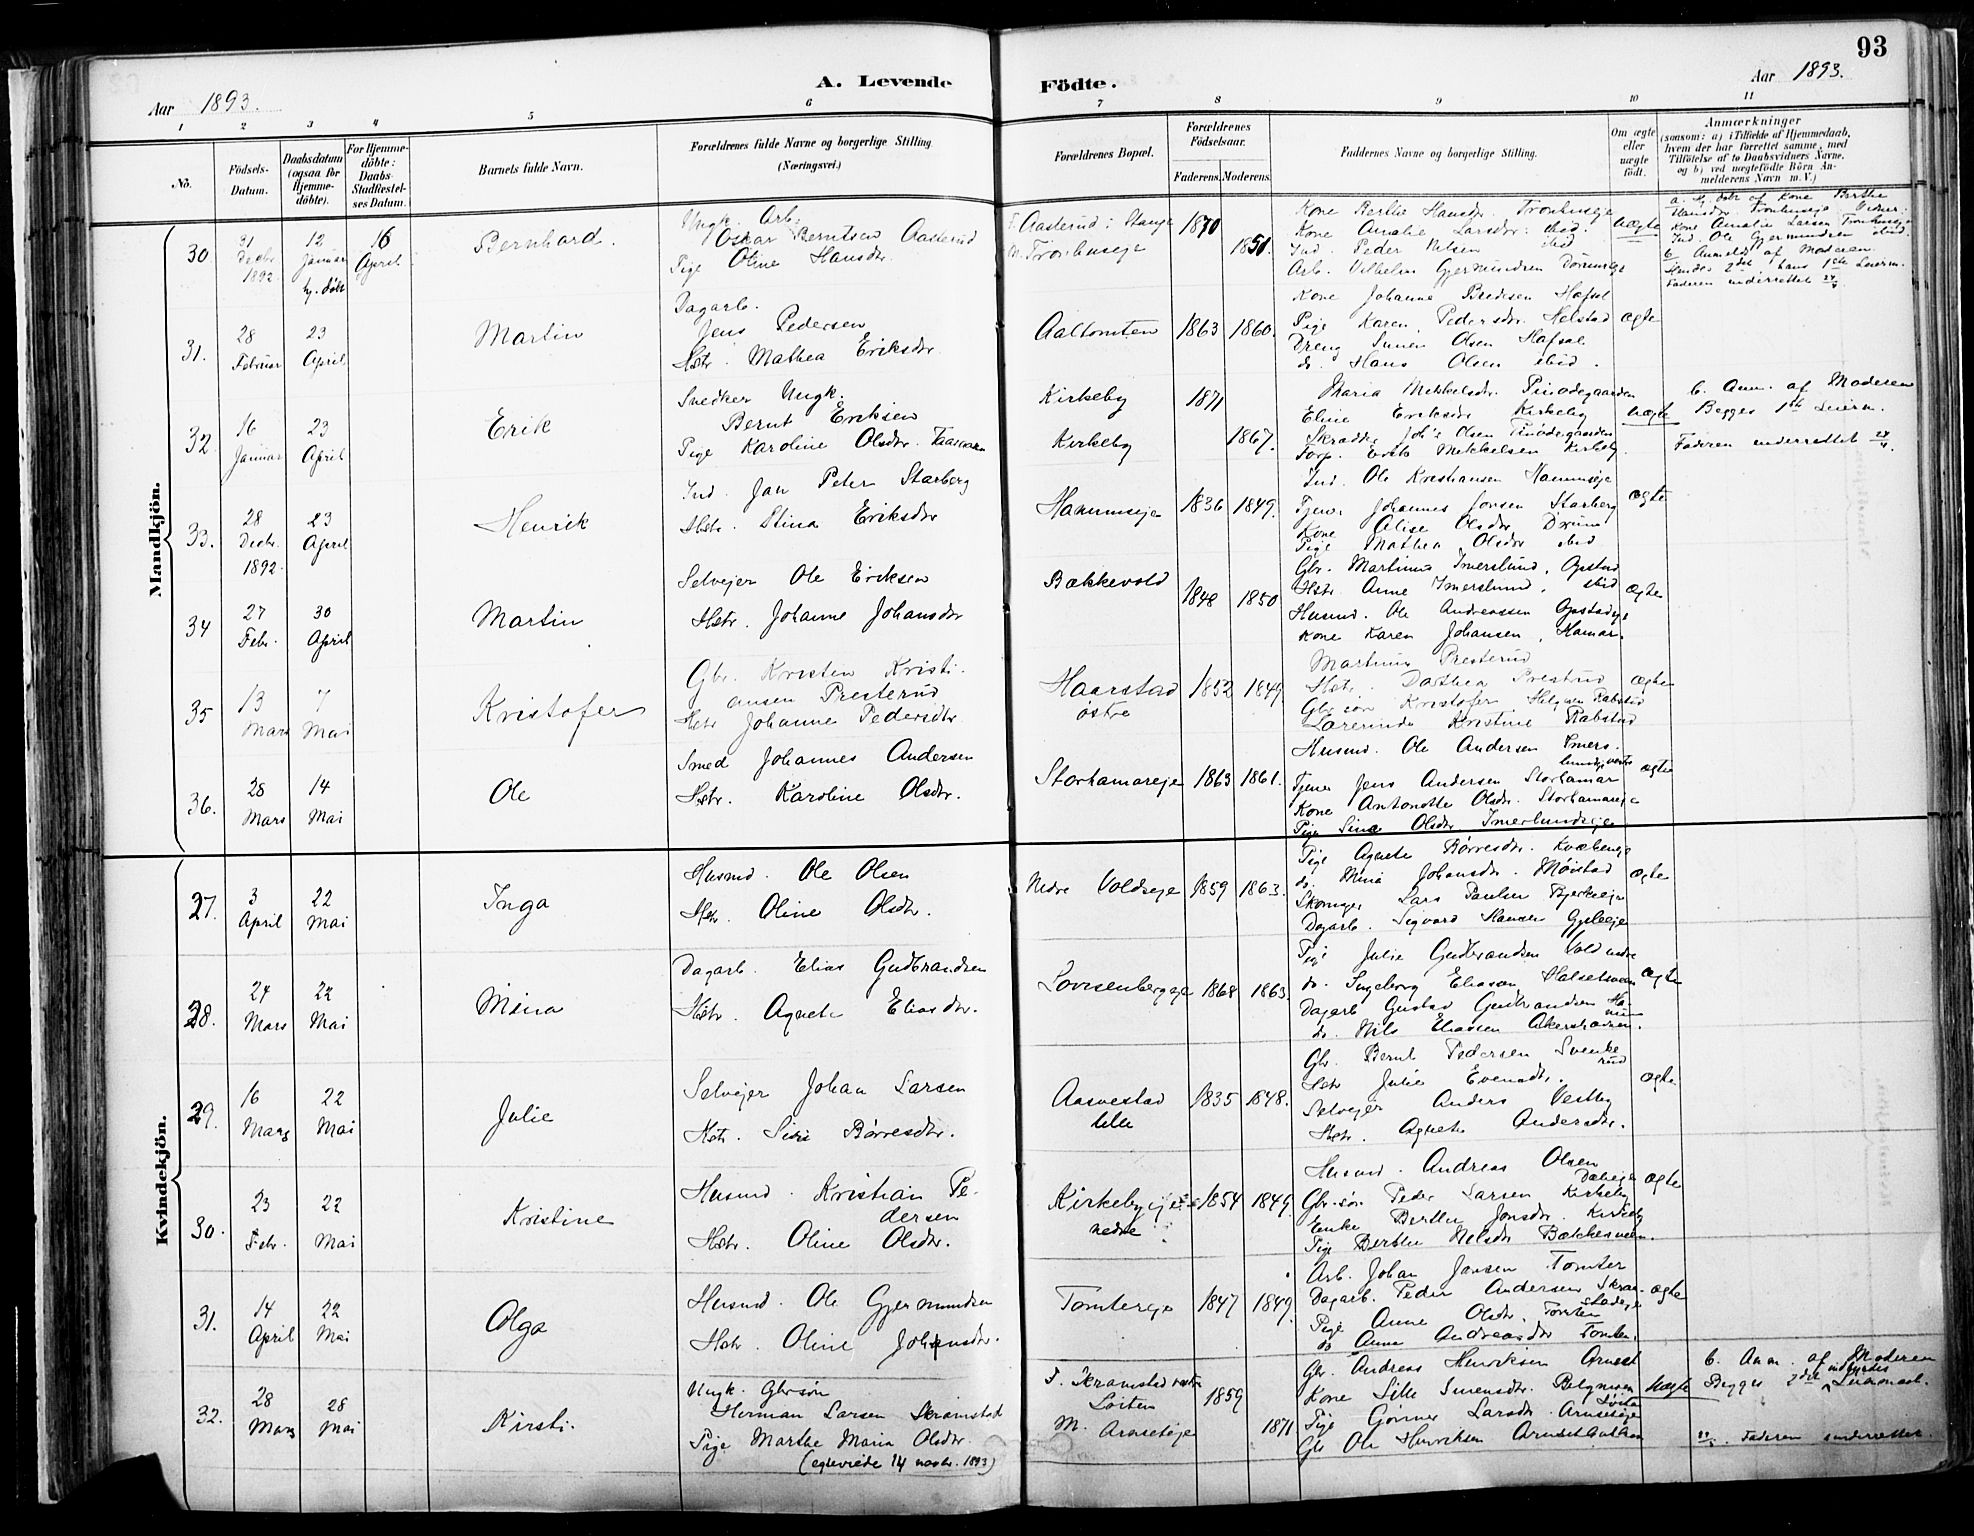 93
A. Levende Födte.
Aar 1893.
Aar 1893.
1 2 3 4 5 6 7 8 9 10 11
No.
Födsels-Datum.
Daabsdatum (ogsaa for Hjemme-döbte).
For Hjemme-döbte: Daabs-Stadfæstel-ses Datum.
Barnets fulde Navn.
Forældrenes fulde Navne og borgerlige Stilling (Næringsvei.)
Forældrenes Bopæl.
Forældrenes Födselsaar.
Faderens. Moderens.
Faddernes Navne og borgerlige Stilling.
Om ægte eller uægte födt.
Anmærkninger
(saasom: a) i Tilfælde af Hjemmedaab,
hvem der har forrettet samme, med
Tilföielse af to Daabsvidners Navne,
og b) ved uægtefödte Börn An-
melderens Navn m. V.)
Mandkjön.
30. 31 Decbr 1892. 12 Januar hj. døbt 16 April Bernhard.
Ungk. Arb. Oskar Berntsen Aasterud
Pige Oline Hansdtr.
F. Aasterud i Stange
M. Tronhuseje
1870 1851.
Kone Berthe Hansdr. Tronhuseje
Kone Amalie Larsdr. ibid.
Ind. Peder Nilsen ibid
Arb. Vilhelm Gjermundsen
uægte
a. Hj. døbt af Kone Berthe
Hansdr. Tronhuseje Vidner:
Kone Amalie Larsen Tronhuseje
Ind. Ole Gjermundsen ibid.
b. Anmeldt af Moderen.
Hendes 2det hans 1ste Leierm.
Faderen underrettet
31. 28 Februar 23 April Martin
Dagarb.
Jens Pedersen
Hstr. Mathea Eriksdtr.
Aaltomten 1863 1860.
Kone Johanne Bredesen Hafsal
Pige Karen Pedersdr. Helstad
Dreng Olsen Hafsal
do. Hans Olsen ibid.
ægte
32. 16 Januar 23 April Erik
Snedker Ungk.
Bernt Eriksen
Pige Karoline Olsdtr.
Kirkeby 1871
Kirkeby 1867.
Maria Mikkelsdr.
Eline Eriksdr Kirkeby
Olsen
Mikkelsen Kirkeby.
uægte
b. Anm. af Moderen
Begges 1ste Leierm.
Faderen underrettet
33. 28 Decbr. 1892. 23 April Henrik
Ind. Jan Peter Starberg
Hstr. Stina Eriksdtr
Hammseje 1836 1849.
Ind. Ole Kristiansen Hammseje
Tjener Johannes Jonsen Starberg
Kone Olsdtr
Pige Mathea Olsdtr ibid
ægte
34 27 Febr. 30 April Martin
Selvejer Ole Eriksen
Hstr. Johanne Johansdtr
Bækkevold 1848 1850
Gbr. Martinus Imerslund, Opstad
Hstr. Anne Imerslund, ibid
Husmd. Ole Andreassen Opstadeje
Kone Karen Johansen, Hamar.
ægte
35 13 Mars 7 Mai Kristofer
Gbr. Kristen Kristi-
ansen Presterud
Hstr Johanne Pedersdtr.
Haarstad østre 1852 1849.
Martinus Presterud
Hstr. Dorthea Presterud
Gbr.søn Kristofer Helgesen Rabstad
Lærerinde Kristine Rabstad
ægte
36. 28 Mars 14 Mai Ole
Smed Johannes Andersen
Hstr. Karoline Olsdtr.
Storhamareje 1863 1861.
Husmd. Ole Andersen Imers-
lundeje
Tjener Jens Andersen Storhamar
Kone Antonette Olsdtr. Storhamareje
Pige Sina Olsdtr. Imerlundseje
ægte
Kvindekjön.
27. 3 April 22 Mai Inga
Husmd. Ole Olsen
Hstr. Oline Olsdtr.
Nedre Voldseje 1859 1863.
Pige Agnete Børresdtr.
do. Mina Johansdr. Møistad
Skomager Lars Paulsen Bjerkeeje
Dagarb. Sigvard Hansen
ægte
28. 24 Mars 22 Mai Mina
Dagarb. Elias Gudbrandsen
Hstr. Agnete Eliasdtr.
Lovisenbergeje 1868 1863.
Pige Julie Gudbrandsen Vold nedre
do. Ingeborg Eliasen
Dagarb Gustav Gudbrandsen
do. Nils Eliassen
ægte
29. 16 Mars 22 Mai Julie
Selvejer Johan Larsen
Hstr. Siri Børresdtr.
Aasvestad lille 1835 1848.
Gbr. Bernt Pedersen Svenke-
rud
Hstr Julie Evensdtr.
Selvejer Anders Vestby
Hstr. Agnete Andersdtr.
ægte
30. 23 Febr. 22 Mai Kristine
Husmd. Kristian Pe-
dersen
Hstr. Oline Olsdtr.
Kirkebyeje nedre 1854 1849.
Husmd. Andreas Olsen
Gbr.søn Peder Larsen Kirkeby
Enke Berthe Jonsdtr. Kirkeby
Pige Berthe Nilsdtr Bækkesveen.
ægte
31. 14 April 22 Mai Olga
Husmd. Ole Gjermundsen
Hstr. Oline Johansdtr.
Tomtereje 1847 1849.
Arb. Johan Jansen Tomter
Dagarb. Peder Andersen Skram-
stadeje
Pige Anne Olsdtr. Tomten
do Anna Andreasdtr Tomten.
ægte
32. 28 Mars 28 Mai Kirsti.
Ungk. Gbrsøn
Herman Larsen Skramstad
Pige Marthe Maria Olsdtr.
(egteviede 14 novbr. 1893)
F. Skramstad vestre Løiten 1859
M. Arnseteje 1871
Gbr. Andreas Henriksen Arnset
Kone Lille Simensdtr.
Løiten
Pige Gunner Larsdtr. Arnseteje
Gbr Ole Henriksen
uægte
b. Anm. af Moderen
Begges 2det indbyrdes Leiermaal.
Faderen underrettet.